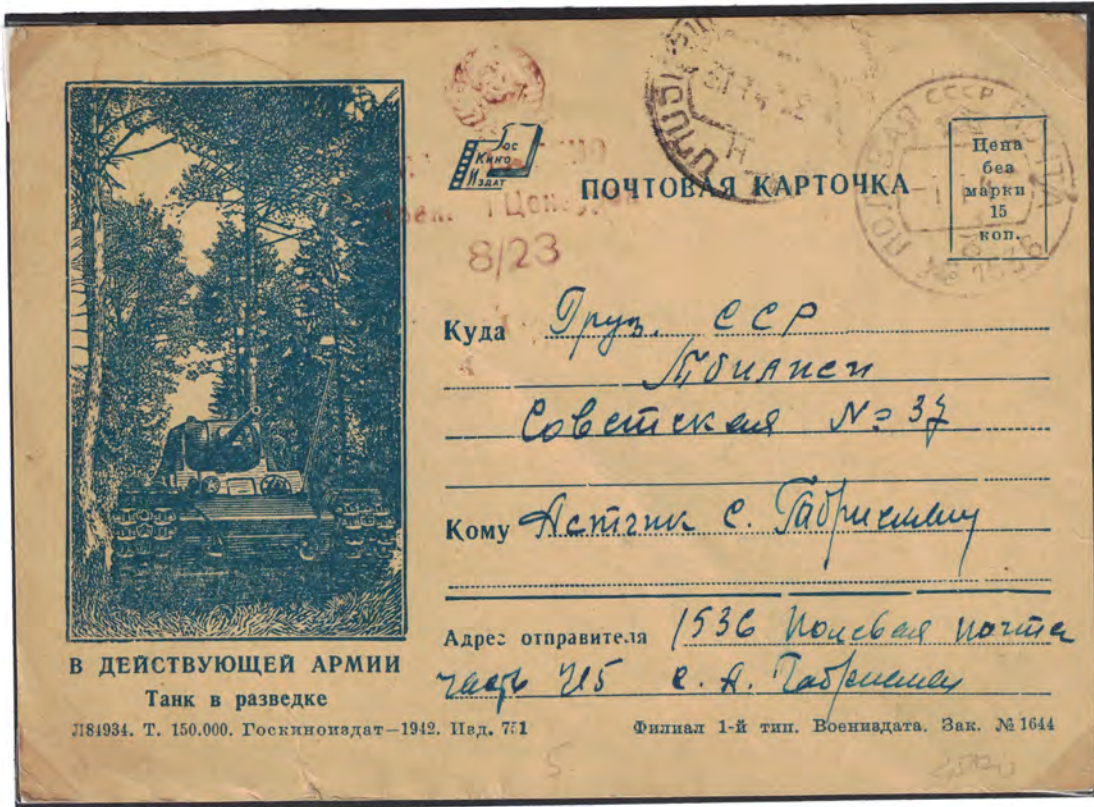 Гос
Кино
Издат
ПОЧТОВАЯ КАРТОЧКА
Цена
без
марки
15
коп.
ПОЛЕВАЯ ПОЧТА
СССР
8/23
Куда Груз. ССР
Тбилиси
Советская № 37
Кому Астхик С.
Адрес отправителя 1536 Полевая почта
часть 715 С. А.
В ДЕЙСТВУЮЩЕЙ АРМИИ
Танк в разведке
Л84934. Т. 150.000. Госкиноиздат—1942. Изд. 751
Филиал 1-й тип. Воениздата. Зак. № 1644